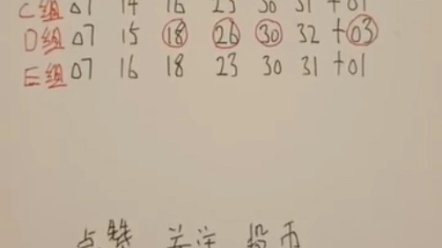 C组 07 14 16 23 30 31 +01
D组 07 15 18 26 30 32 +03
E组 07 16 18 23 30 31 +01
点赞 关注 投币